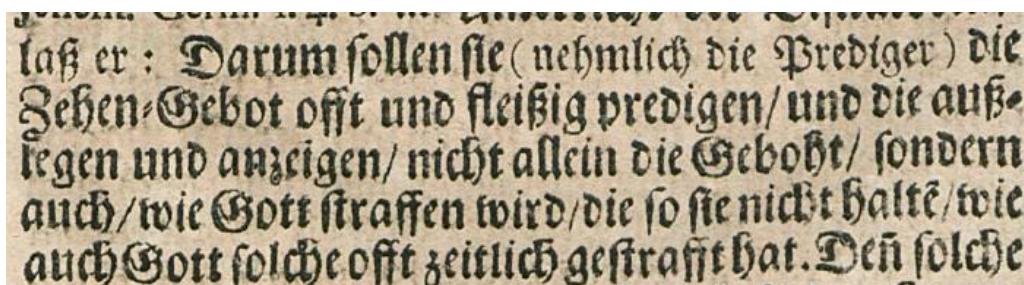 laß er: Darum ſollen ſie (nehmlich die Prediger) die
Zehen⸗Gebot offt und fleißig predigen/ und die auß⸗
legen und anzeigen/ nicht allein die Geboht/ ſondern
auch/wie Gott ſtraffen wird/die ſo ſie nicht haltẽ/wie
auch Gott ſolche offt zeitlich geſtrafft hat. Den̄ ſolche